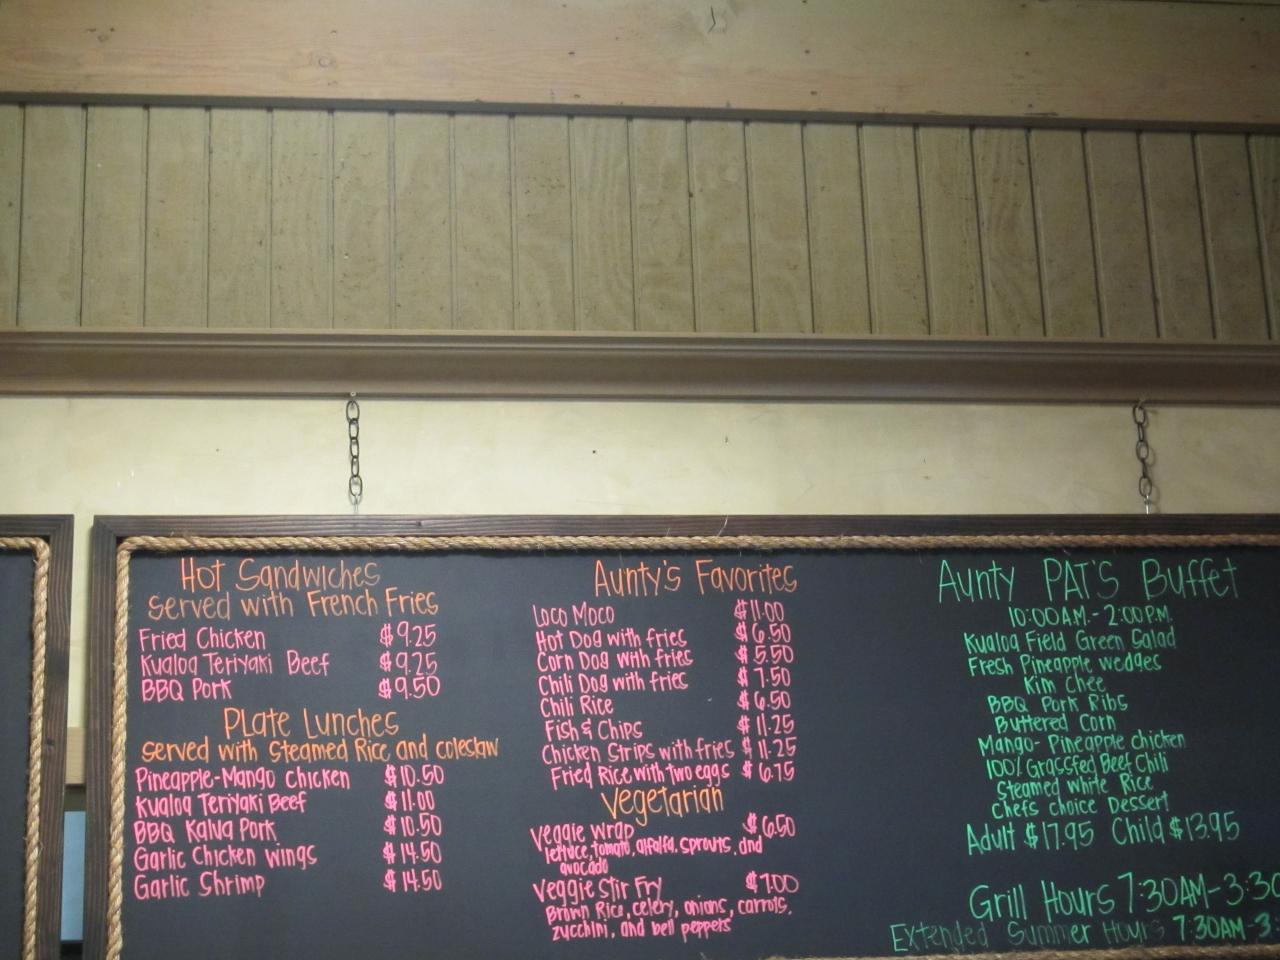 Hot Sandwiches
served with French Fries
Fried Chicken $9.25
Kualoa Teriyaki Beef $9.25
BBQ Pork $9.50
Plate Lunches
served with Steamed Rice and coleslaw
Pineapple-Mango Chicken $10.50
Kualoa Teriyaki Beef $11.00
BBQ Kalua Pork $10.50
Garlic Chicken Wings $14.50
Garlic Shrimp $14.50
Aunty's Favorites
Loco Moco $11.00
Hot Dog with fries $6.50
Corn Dog with fries $5.50
Chili Dog with fries $7.50
Chili Rice $6.50
Fish & Chips $11.25
Chicken Strips with fries $11.25
Fried Rice with two eggs $6.75
Vegetarian
Veggie Wrap $6.50
lettuce, tomato, alfalfa, sprouts, and
avocado
Veggie Stir Fry $7.00
Brown Rice, celery, onions, carrots,
zucchini, and bell peppers
Aunty PAT'S Buffet
10:00 A.M. - 2:00 P.M.
Kualoa Field Green Salad
Fresh Pineapple wedges
Kim Chee
BBQ Pork Ribs
Buttered Corn
Mango-Pineapple Chicken
100% Grassfed Beef Chili
Steamed White Rice
Chefs choice Dessert
Adult $17.95 Child $13.95
Grill Hours 7:30AM-3:30
Extended Summer Hours 7:30AM-3: